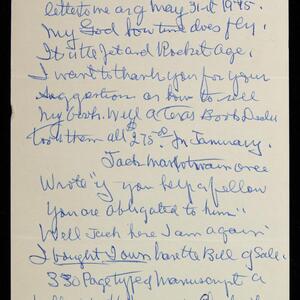 letter to me a g May 31st 1975.
My God how time does fly.
It is the Jet and Rocket Age.
I want to thank you for your
suggestion as how to sell
my book. Well a Texas Book Dealer
took them all $275.00 In January.
Jack once
Wrote "if you help a fellow
you are obligated to him"
Well Jack here I am again
I bought I own have the Bill of Sale.
330 Page typed Manuscript a